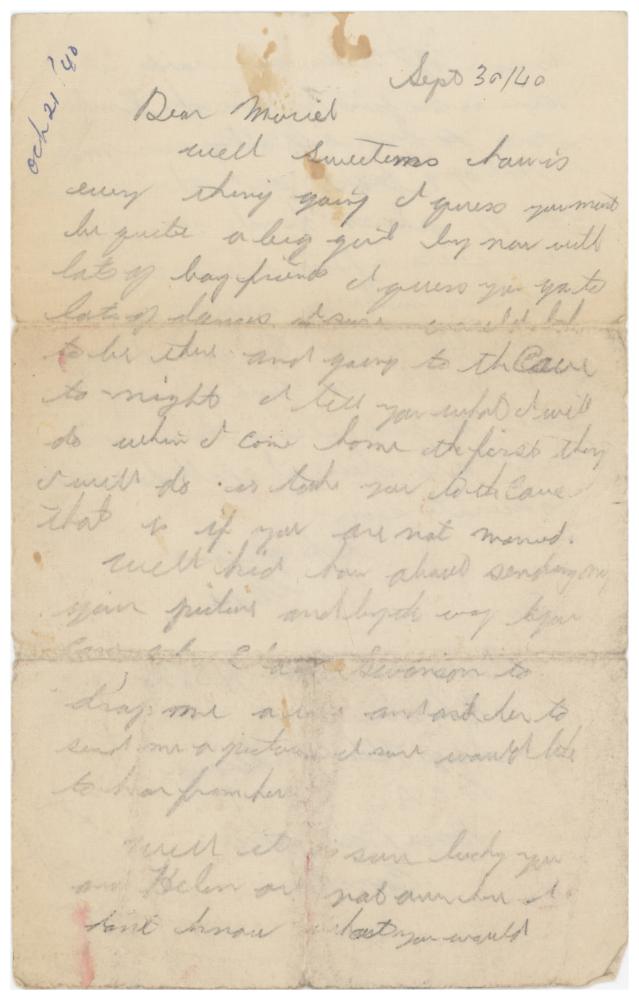 Oct 21 '40
Sept 30/40
Dear Muriel
well sweetems how is
every thing going I guess you must
be quite a big girl by now with
lots of boy friends I guess you go to
lots of dances I sure would like
to be there and going to th Cave
to-night I tell you what I will
do when I come home th first thing
I will do is take you to th Cave
that is if you are not married.
Well kid how about sending me
your picture and by th way if you
Swanson to
drop me a line and ask her to
send me a picture I sure would like
to hear from her
Well it is sure lucky you
and Helen are not over here I
dont know what you would